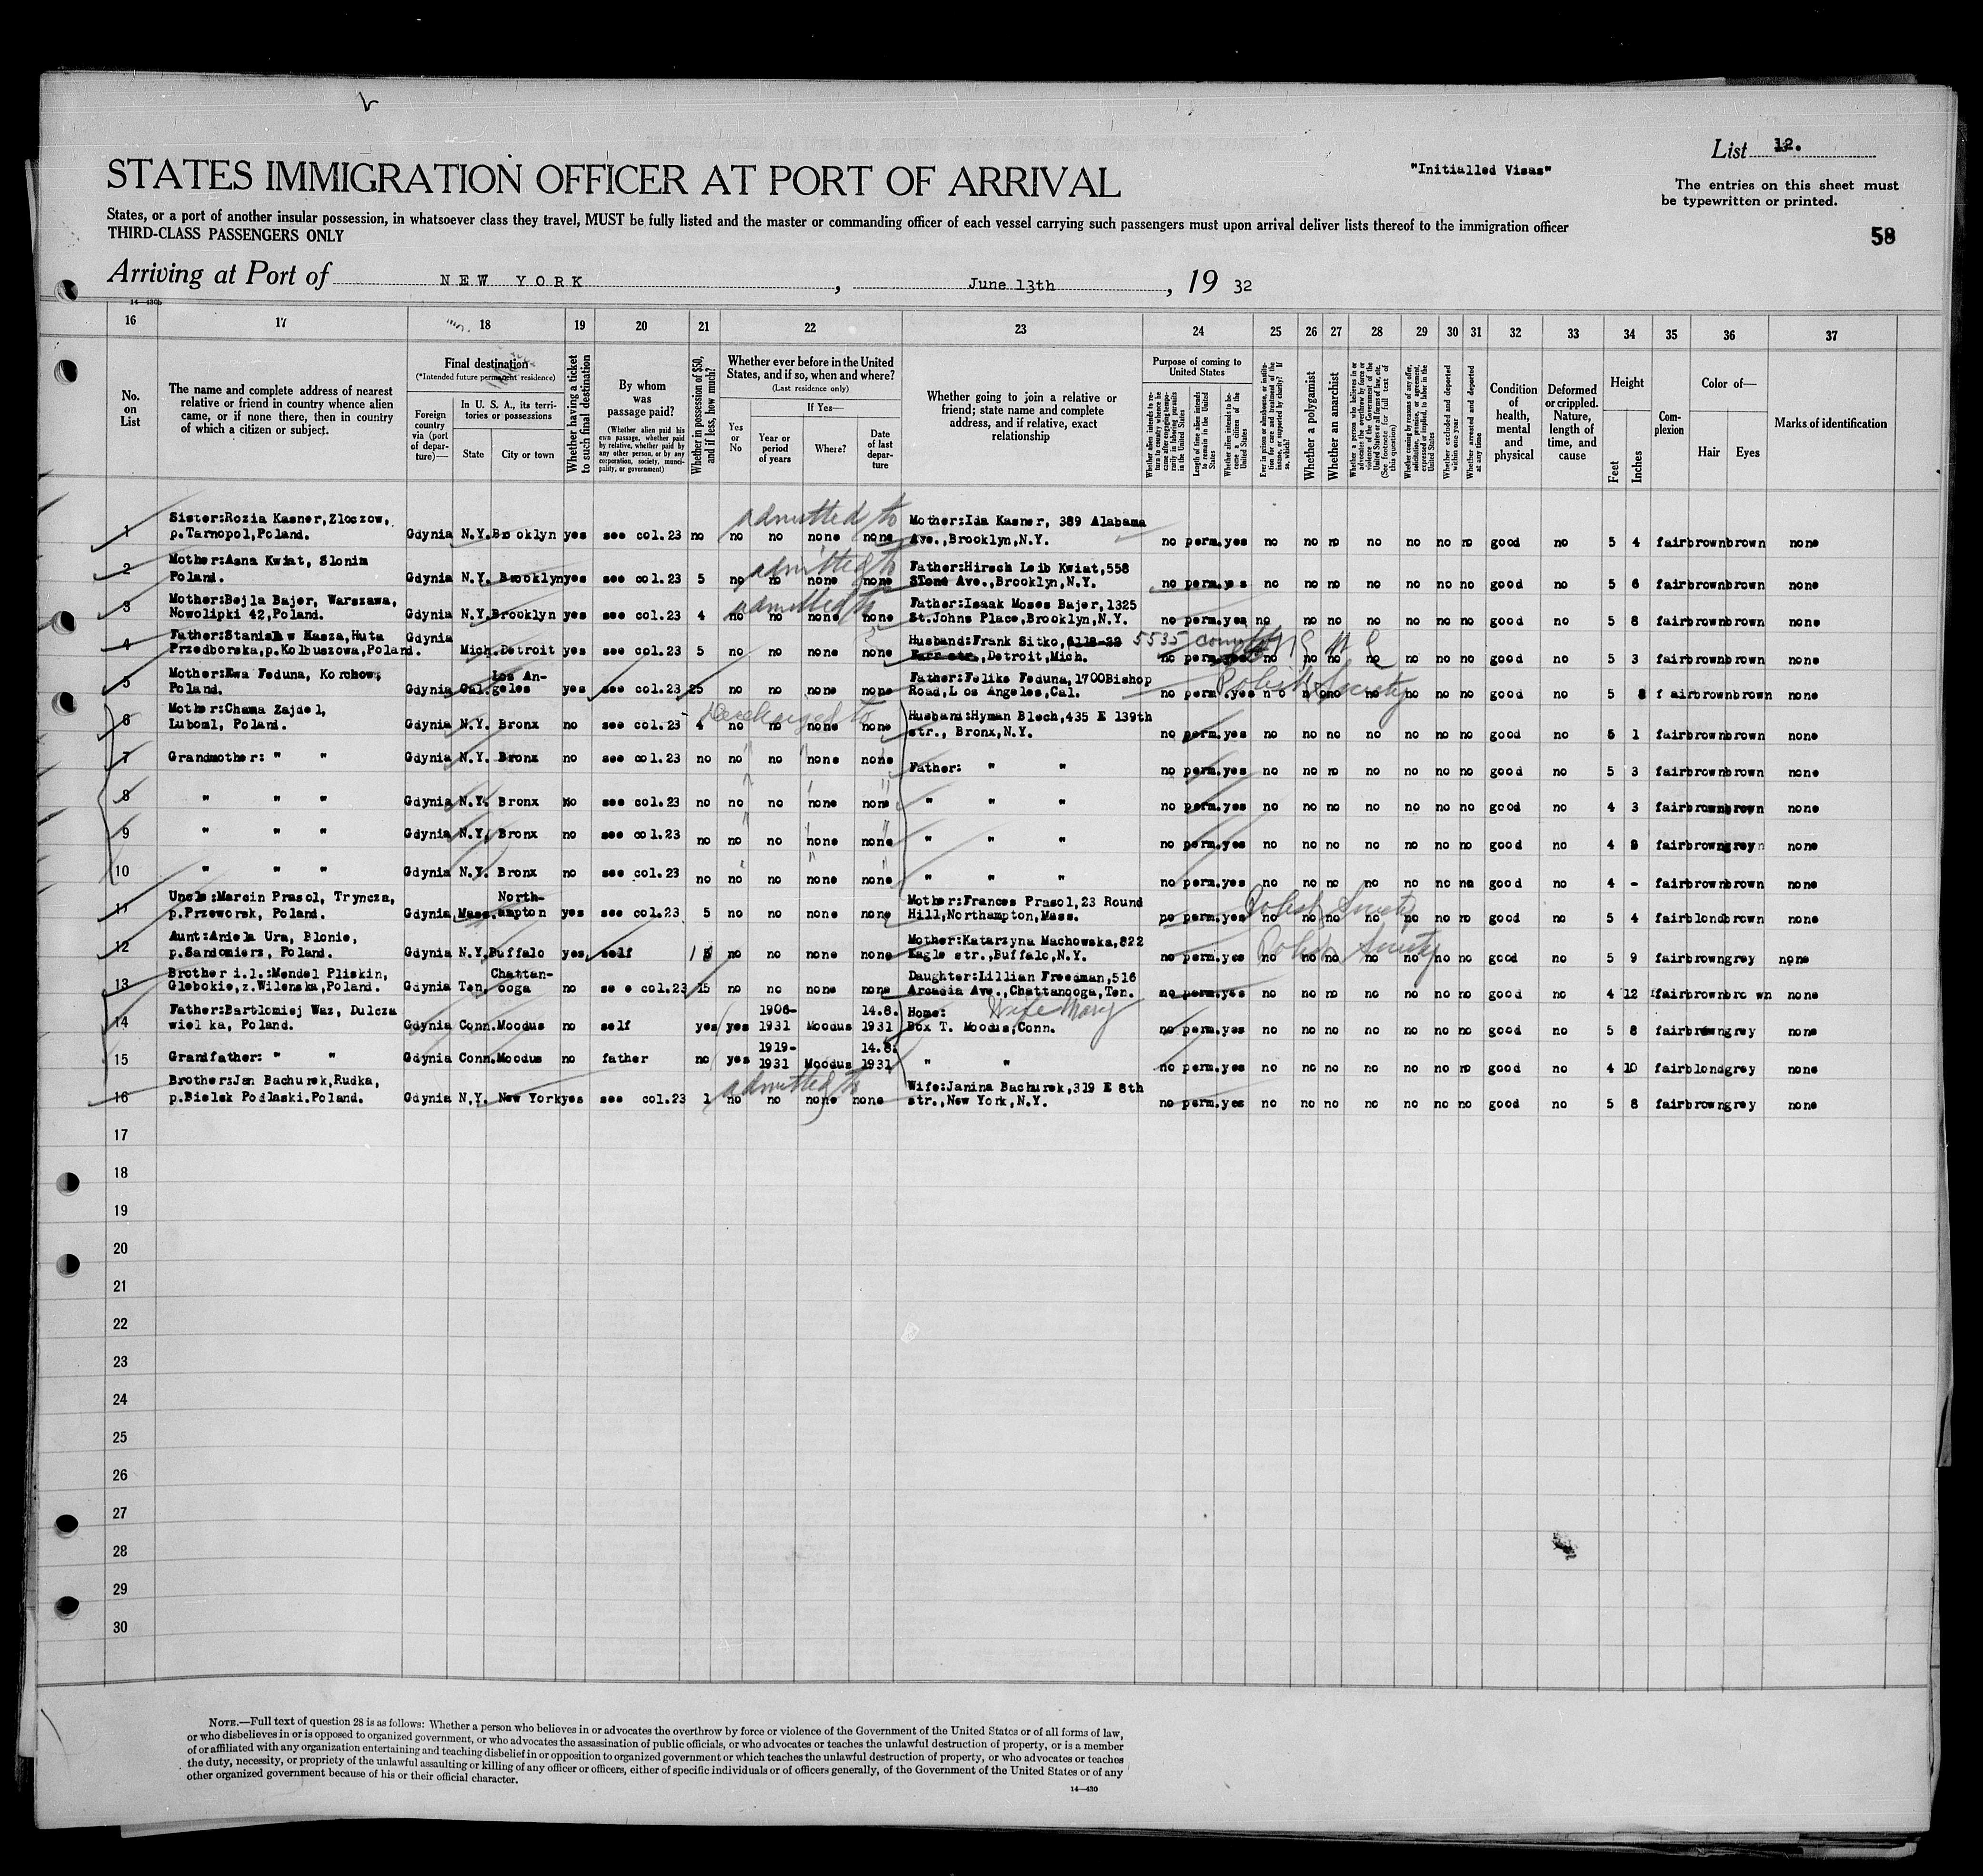 List 12.
"Initialled Visas"
STATES IMMIGRATION OFFICER AT PORT OF ARRIVAL
The entries on this sheet must
be typewritten or printed.
States, or a port of another insular possession, in whatsoever class they travel, MUST be fully listed and the master or commanding officer of each vessel carrying such passengers must upon arrival deliver lists thereof to the immigration officer
THIRD-CLASS PASSENGERS ONLY
58
Arriving at Port of NEW YORK, June 13th, 19 32
14-430b
16 17 18 19 20 21 22 23 24 25 26 27 28 29 30 31 32 33 34 35 36 37
No. on List
The name and complete address of nearest relative or friend in country whence alien came, or if none there, then in country of which a citizen or subject.
Final destination
(*Intended future permanent residence)
Foreign country via (port of departure)—
In U. S. A., its territories or possessions
State
City or town
Whether having a ticket to such final destination
By whom was passage paid?
(Whether alien paid his own passage, whether paid by relative, whether paid by any other person, or by any corporation, society, municipality, or government)
Whether in possession of $50, and if less, how much?
Whether ever before in the United States, and if so, when and where?
(Last residence only)
Yes or No
If Yes—
Year or period of years
Where?
Date of last departure
Whether going to join a relative or friend; state name and complete address, and if relative, exact relationship
Purpose of coming to United States
Whether alien intends to return to country whence he came after engaging temporarily in laboring pursuits in the United States
Length of time alien intends to remain in the United States
Whether alien intends to become a citizen of the United States
Ever in prison or almshouse, or institution for care and treatment of the insane, or supported by charity? If so, which?
Whether a polygamist
Whether an anarchist
Whether a person who believes in or advocates the overthrow by force or violence of the Government of the United States or all forms of law, etc. (See footnote for full text of this question)
Whether coming by reasons of any offer, solicitation, promise, or agreement, expressed or implied, to labor in the United States
Whether excluded and deported within one year
Whether arrested and deported at any time
Condition of health, mental and physical
Deformed or crippled. Nature, length of time, and cause
Height
Feet
Inches
Complexion
Color of—
Hair
Eyes
Marks of identification
admitted to
1 Sister:Rozia Kasner,Zloszow, p.Tarnopol,Poland. Gdynia N.Y. Brooklyn yes see col.23 no no no none none Mother:Ida Kasner, 389 Alabama Ave.,Brooklyn,N.Y. no perm. yes no no no no no no no good no 5 4 fair brown brown none
admitted to
2 Mother:Asna Kwiat, Slonim Poland. Gdynia N.Y. Brooklyn yes see col.23 5 no no none none Father:Hirsch Leib Kwiat,558 Stone Ave.,Brooklyn,N.Y. no perm. yes no no no no no no no good no 5 6 fair brown brown none
admitted to
3 Mother:Bejla Bajer, Warszawa, Nowolipki 42,Poland. Gdynia N.Y. Brooklyn yes see col.23 4 no no none none Father:Isaak Moses Bajer,1325 St.Johns Place,Brooklyn,N.Y. no perm. yes no no no no no no no good no 5 8 fair brown brown none
4 Father:Stanislaw Kasza,Huta Przedborska,p.Kolbuszowa,Poland. Gdynia Mich. Detroit yes see col.23 5 no no none none Husband:Frank Sitko, 5535 Detroit,Mich. no perm. yes no no no no no no no good no 5 3 fair brown brown none
5 Mother:Ewa Feduna, Korchow, Poland. Gdynia Cal. Los Angeles yes see col.23 25 no no none none Father:Feliks Feduna,1700 Bishop Road,Los Angeles,Cal. no perm. yes no no no no no no no good no 5 8 fair brown brown none
Polish Society
Discharged to
6 Mother:Chama Zajdel, Luboml, Poland. Gdynia N.Y. Bronx no see col.23 4 no no none none Husband:Hyman Blech,435 E 139th str., Bronx,N.Y. no perm. yes no no no no no no no good no 5 1 fair brown brown none
7 Grandmother: " " Gdynia N.Y. Bronx no see col.23 no no no none none Father: " " no perm. yes no no no no no no no good no 5 3 fair brown brown none
8 " " " Gdynia N.Y. Bronx no see col.23 no no no none none " " " no perm. yes no no no no no no no good no 4 3 fair brown brown none
9 " " " Gdynia N.Y. Bronx no see col.23 no no no none none " " " no perm. yes no no no no no no no good no 4 9 fair brown grey none
10 " " " Gdynia N.Y. Bronx no see col.23 no no no none none " " " no perm. yes no no no no no no no good no 4 - fair brown brown none
11 Uncle:Marcin Prasol, Tryncza, p.Przeworsk, Poland. Gdynia Mass. Northampton yes see col.23 5 no no none none Mother:Frances Prasol,23 Round Hill,Northampton,Mass. no perm. yes no no no no no no no good no 5 4 fair blond brown none
Polish Society
12 Aunt:Aniela Ura, Blonie, p.Sandomierz, Poland. Gdynia N.Y. Buffalo yes self 15 no no none none Mother:Katarzyna Machowska,822 Eagle str.,Buffalo,N.Y. no perm. yes no no no no no no no good no 5 9 fair brown grey none
Polish Society
13 Brother i.l.:Mendel Pliskin, Glebokie,z.Wilenska,Poland. Gdynia Ten. Chattanooga no see col.23 15 no no none none Daughter:Lillian Freedman,516 Arcadia Ave.,Chattanooga,Ten. no perm. yes no no no no no no no good no 4 12 fair brown brown none
14 Father:Bartlomiej Waz, Dulcza wielka, Poland. Gdynia Conn. Moodus no self yes yes 1906-1931 Moodus 14.8.1931 Home: Wife Mary Box T. Moodus,Conn. no perm. yes no no no no no no no good no 5 8 fair brown grey none
15 Grandfather: " " Gdynia Conn. Moodus no father no yes 1919-1931 Moodus 14.8.1931 " " no perm. yes no no no no no no no good no 4 10 fair blond grey none
admitted to
16 Brother:Jan Bachurek,Rudka, p.Bielsk Podlaski.Poland. Gdynia N.Y. New York yes see col.23 1 no no none none Wife:Janina Bachurek,319 E 8th str.,New York,N.Y. no perm. yes no no no no no no no good no 5 8 fair brown grey none
17
18
19
20
21
22
23
24
25
26
27
28
29
30
NOTE.—Full text of question 28 is as follows: Whether a person who believes in or advocates the overthrow by force or violence of the Government of the United States or of all forms of law,
or who disbelieves in or is opposed to organized government, or who advocates the assassination of public officials, or who advocates or teaches the unlawful destruction of property, or is a member
of or affiliated with any organization entertaining and teaching disbelief in or opposition to organized government or which teaches the unlawful destruction of property, or who advocates or teaches
the duty, necessity, or propriety of the unlawful assaulting or killing of any officer or officers, either of specific individuals or of officers generally, of the Government of the United States or of any
other organized government because of his or their official character.
14-430